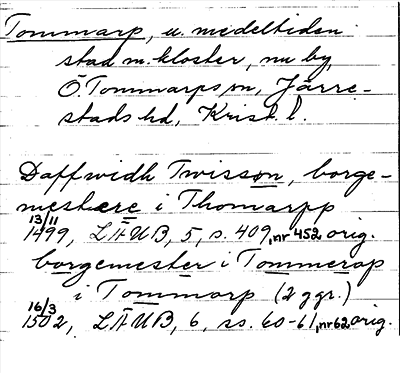 Tommarp, u. medeltiden
stad m. kloster, nu by,
Ö. Tommarps sn, Järre-
stads hd, Krist. l.
Daffwidh Twisson, borge-
mestere i Thomarpp
13/11 1499, LÄUB, 5, s. 409, nr 452 orig.
borgemester i Tommerop
i Tommorp (2 ggr.)
16/3 1502, LÄUB, 6, ss. 60-61, nr 62 orig.